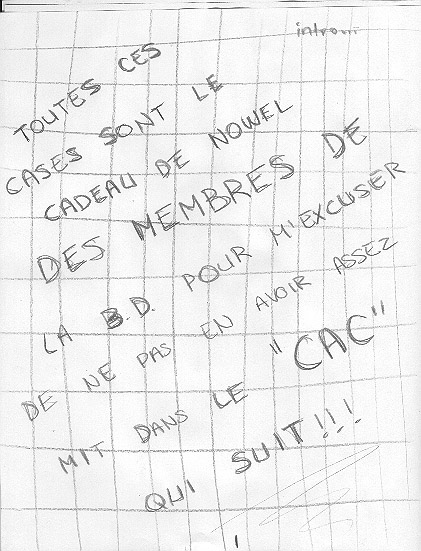 TOUTES CES
CASES SONT LE
CADEAU DE NOWEL
DES MEMBRES DE
LA B.D. POUR M'EXCUSER
DE NE PAS EN AVOIR ASSEZ
MIT DANS LE "CAC"
QUI SUIT!!!
1